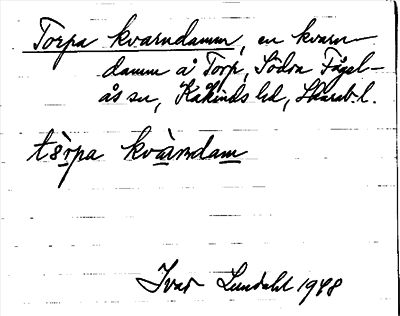 Torpa kvarndamm, en kvarn-
damm å Torp, Södra Fågel-
ås sn, Kåkinds hd, Skarab. l.
tȯ̀rpa kvàrndam
Ivar Lundahl 1948